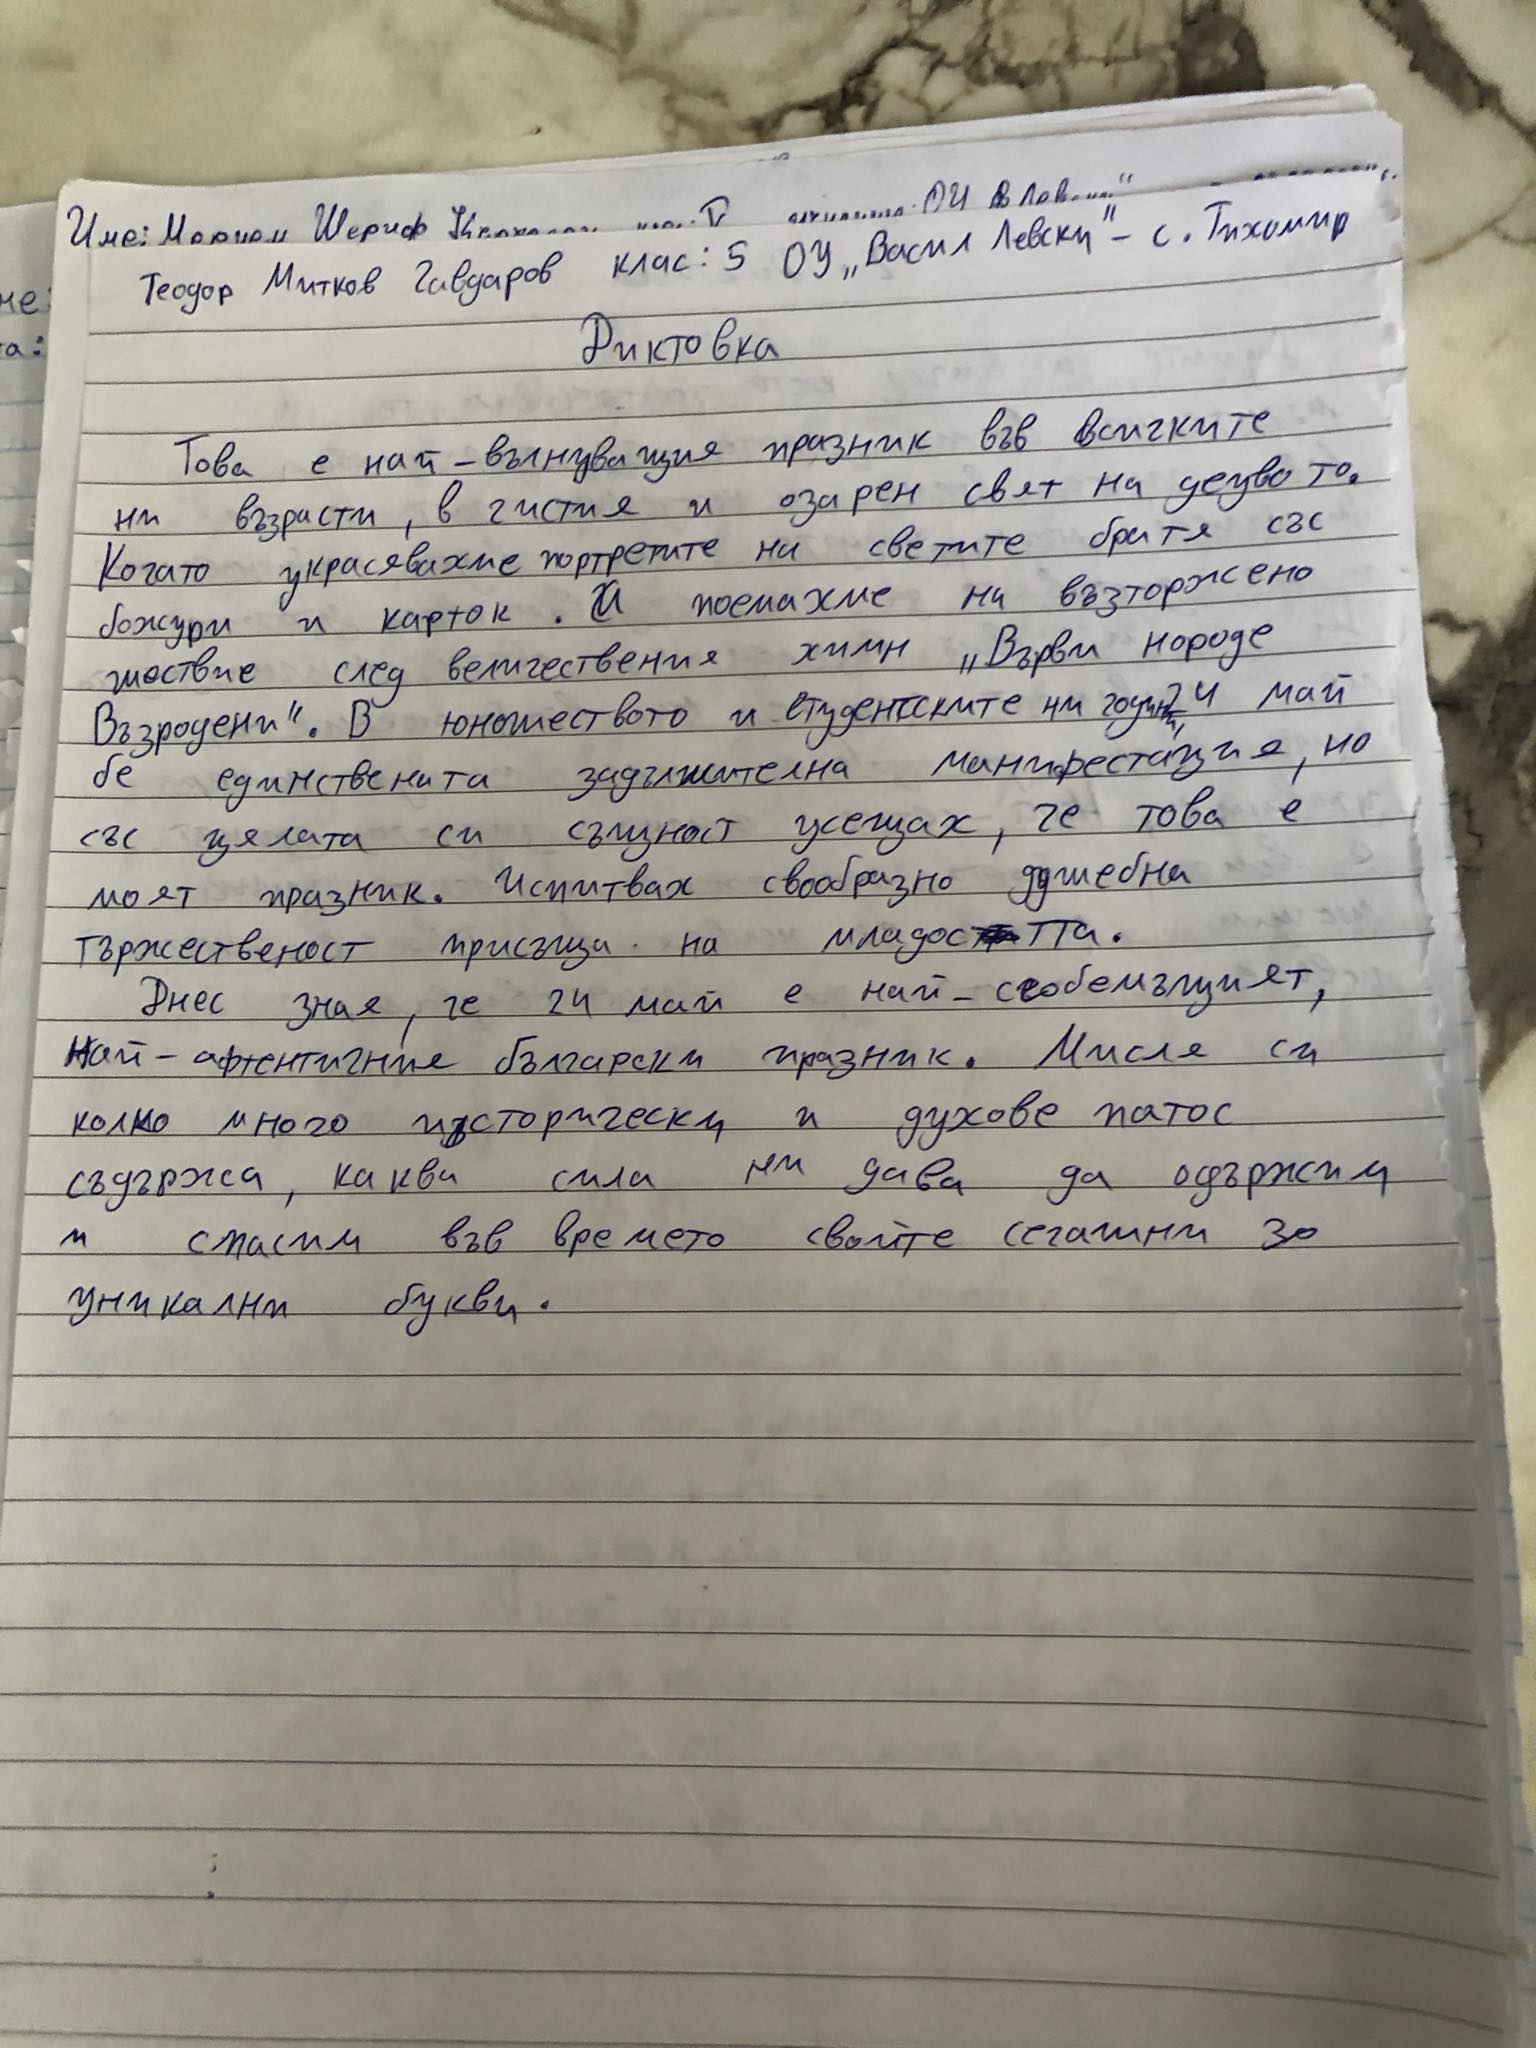 Име: Шериф
Теодор Митков Гавдаров клас: 5 ОУ „Васил Левски" – с. Тихомир
Диктовка
Това е най-вълнуващия празник във всичките
ни възрасти, в чистия и озарен свят на децвото.
Когато украсявахме портретите на светите братя със
божури и карток. И поемахме на възторжено
шествие след величествения химн „Върви народе
Възродени". В юношеството и студентските ни години 24 май
бе единствената задължителна манифестация, но
със цялата си същност усещах, че това е
моят празник. Испитвах свообразно душебна
тържественост присъща на младостта.
Днес зная, че 24 май е най-свобемъщият,
най-афтентичния български празник. Мисля си
колко много исторически и духове патос
съдържа, каква сила ни дава да одържим
и спасим във времето свойте сегашни 30
уникални букви.